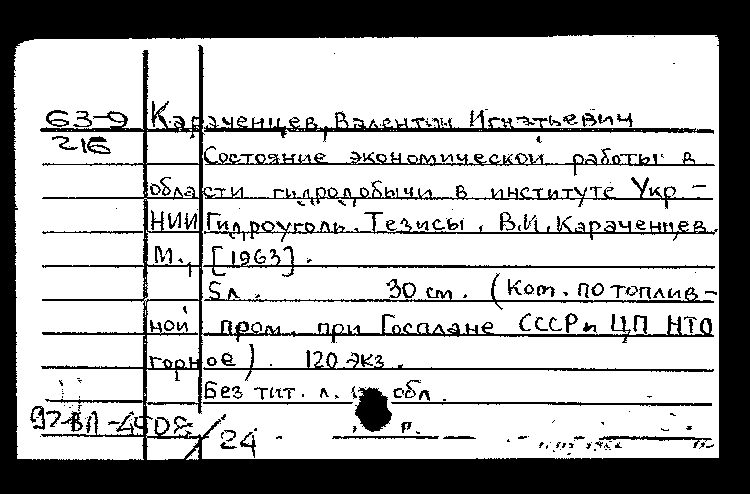 63-9 Караченцев, Валентин Игнатьевич
216
Состояние экономической работы в
области гидродобычи в институте Укр-
НИИ Гидроуголь. Тезисы. В.И. Караченцев.
М., [1963].
5 л. 30 cm. (Ком. по топлив-
ной пром. при Госплане СССР и ЦП НТО
горное). 120 экз.
Без тит. л. и обл.
/24 р.